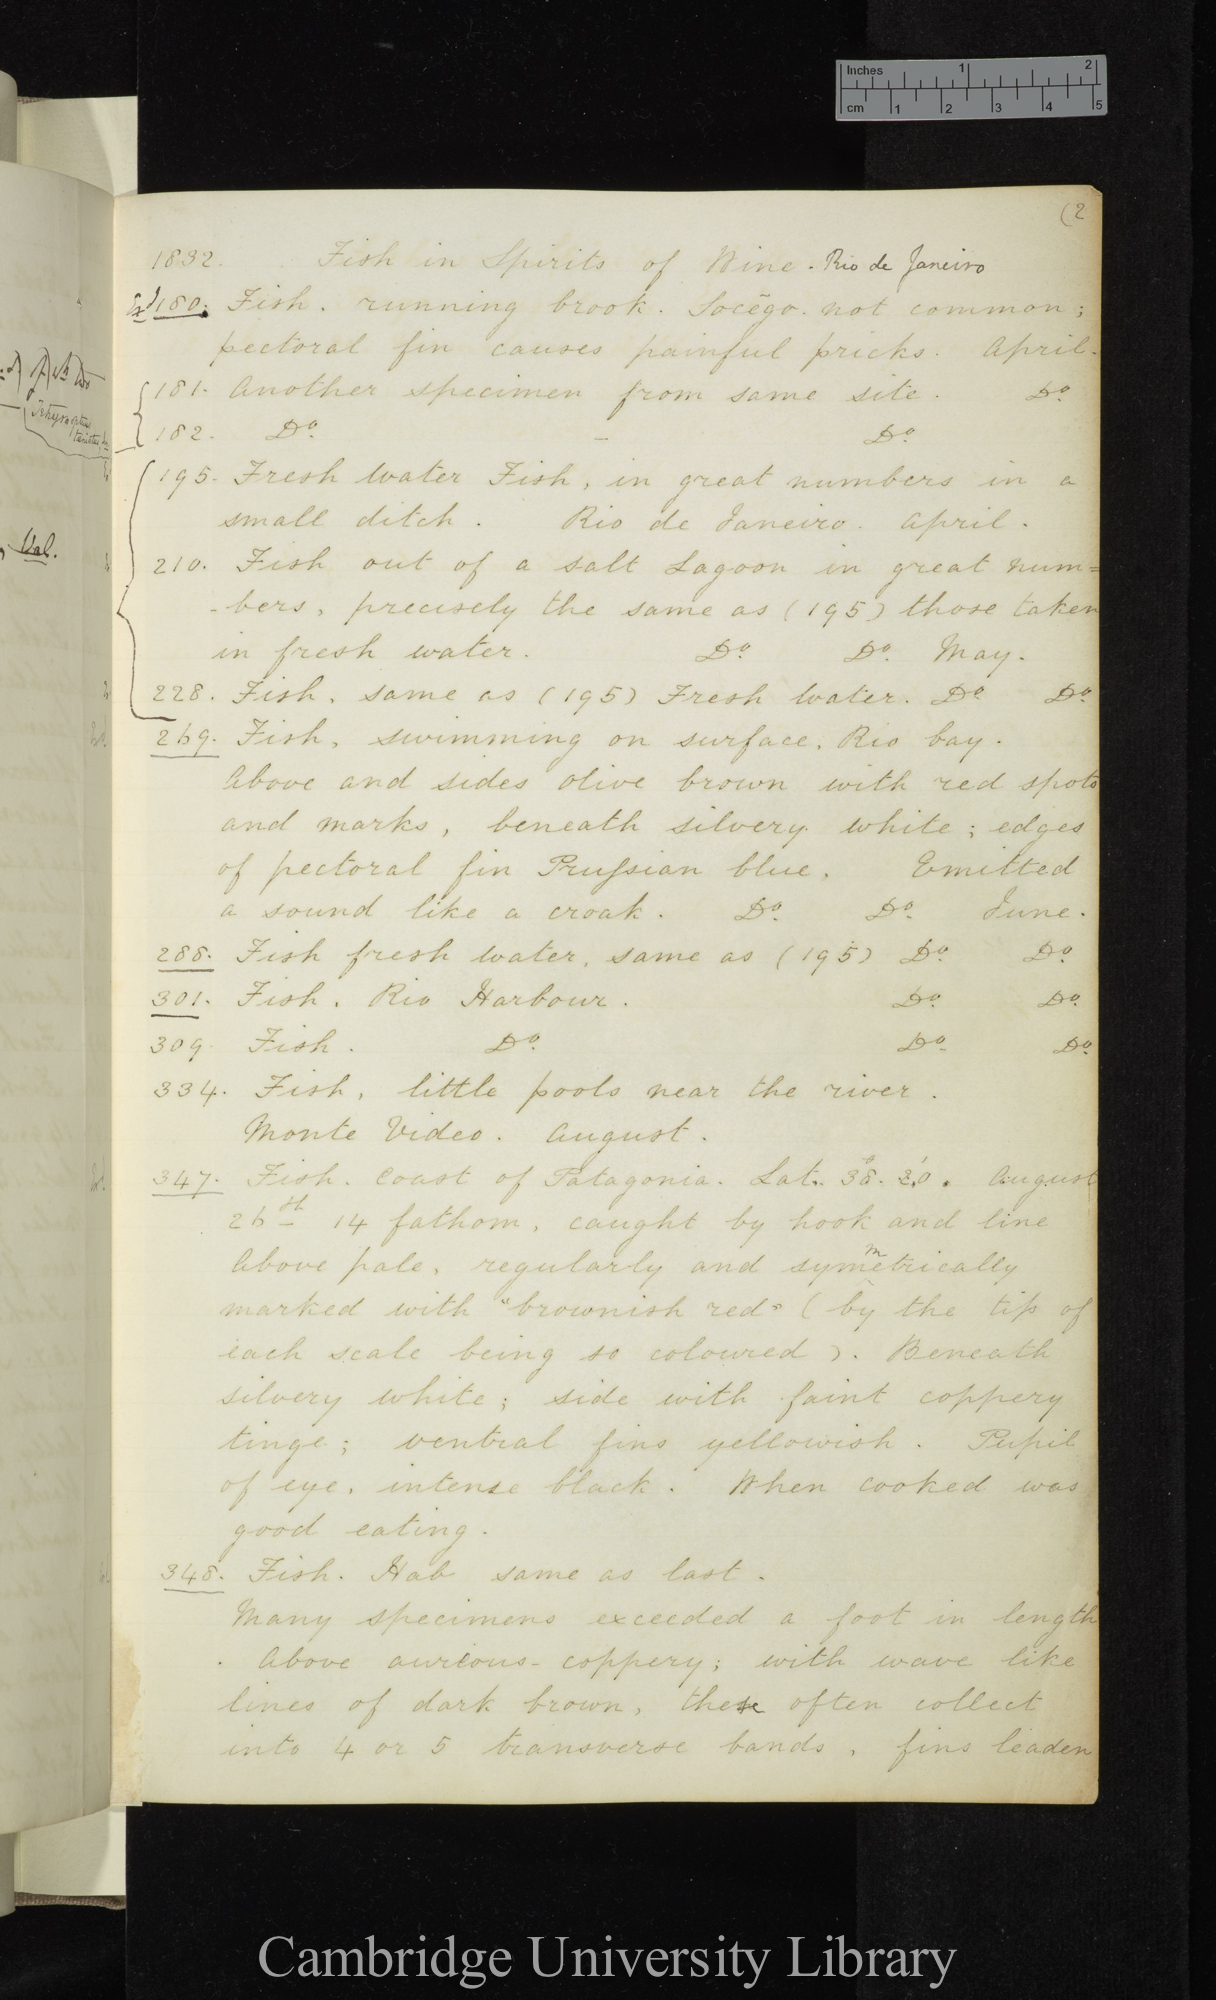 Inches 1 2
cm 1 2 3 4 5
(2
1832. Fish in Spirits of Wine. Rio de Janeiro
180. Fish. running brook. Socêgo. not common;
pectoral fin causes painful pricks. April.
181. Another specimen from same site. Do.
182. Do. Do.
195. Fresh Water Fish, in great numbers in a
small ditch. Rio de Janeiro. April.
210. Fish out of a salt Lagoon in great num=
-bers, precisely the same as (195) those taken
in fresh water. Do. Do. May.
228. Fish, same as (195) Fresh Water. Do Do.
269. Fish, swimming on surface, Rio bay.
Above and sides olive brown with red spots
and marks, beneath silvery white; edges
of pectoral fin Prussian blue. Emitted
a sound like a croak. Do. Do. June.
288. Fish fresh water, same as (195) Do. Do.
301. Fish. Rio Harbour. Do. Do.
309. Fish. Do. Do. Do.
334. Fish, little pools near the river.
Monte Video. August.
347. Fish. Coast of Patagonia. Lat. 38°. 20'. August
26th 14 fathom, caught by hook and line
Above pale, regularly and symmetrically
marked with "brownish red" (by the tip of
each scale being so coloured). Beneath
silvery white; side with faint coppery
tinge; ventral fins yellowish. Pupil
of eye, intense black. When cooked was
good eating.
348. Fish. Hab same as last.
Many specimens exceeded a foot in length
. Above aureous-coppery; with wave like
lines of dark brown, these often collect
into 4 or 5 transverse bands, fins leaden
Val.
Cambridge University Library